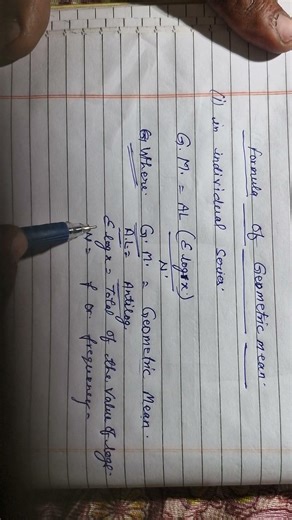 Formula Of Geometric mean.
(i) in individual Series.
G.M. = AL (Σ logx / N.)
Where. G.M. = Geometric Mean.
AL = Antilog.
Σ logx = Total of the Value of loge.
N = f or frequency =